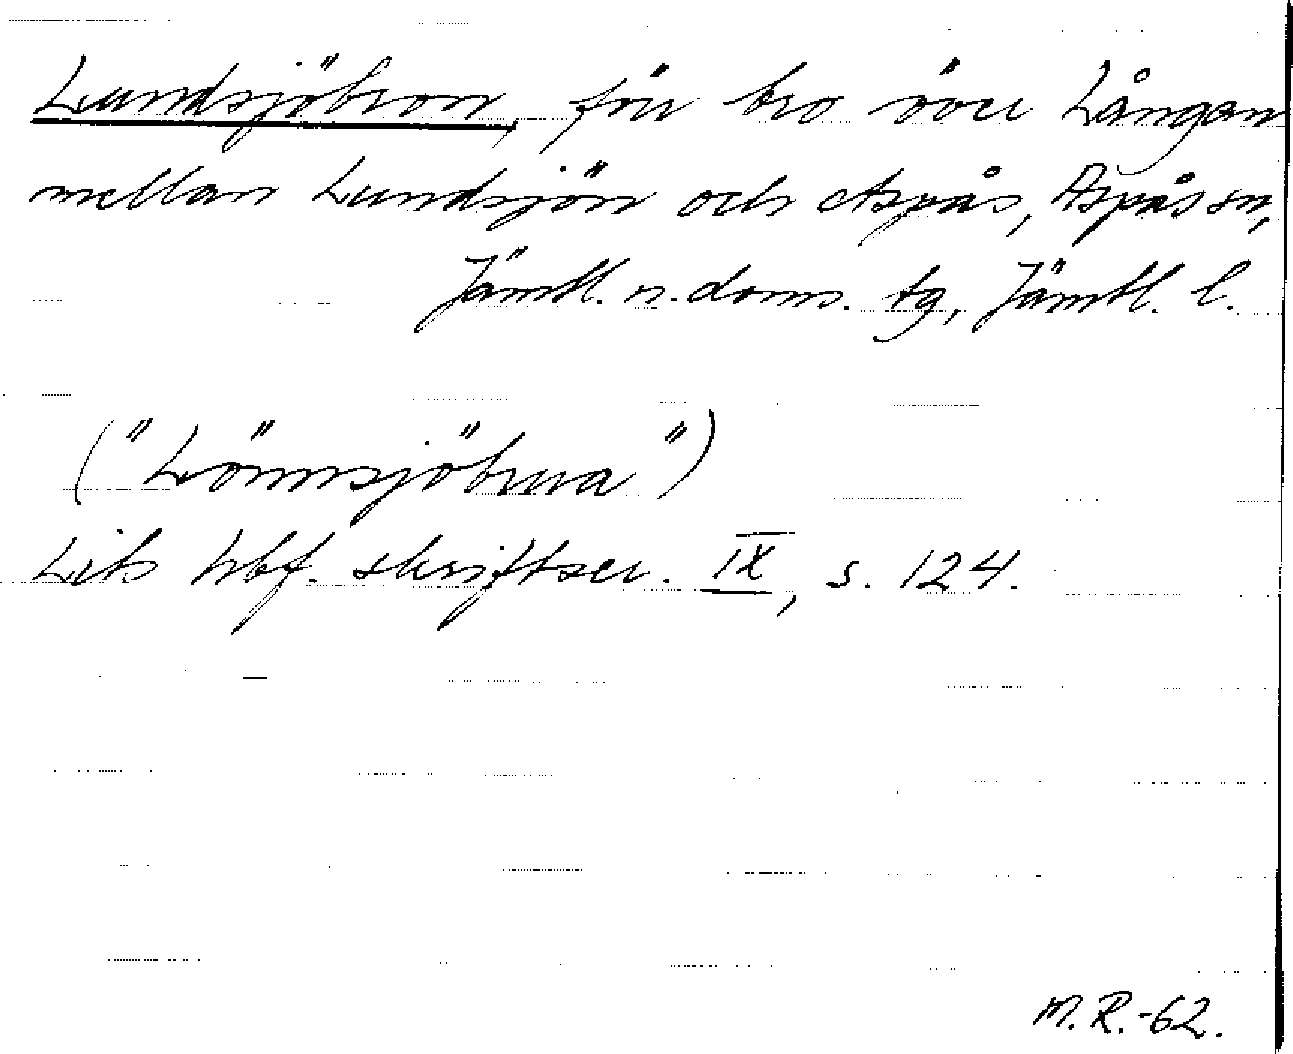 Lundsjöbron, förr bro över Långan
mellan Lundsjön och Aspås, Aspås sn,
Jämtl. n. doms. tg, Jämtl. l.
("Lönnsjöbrua")
Lits hbf. skriftser. IX, s. 124.
M.R.-62.